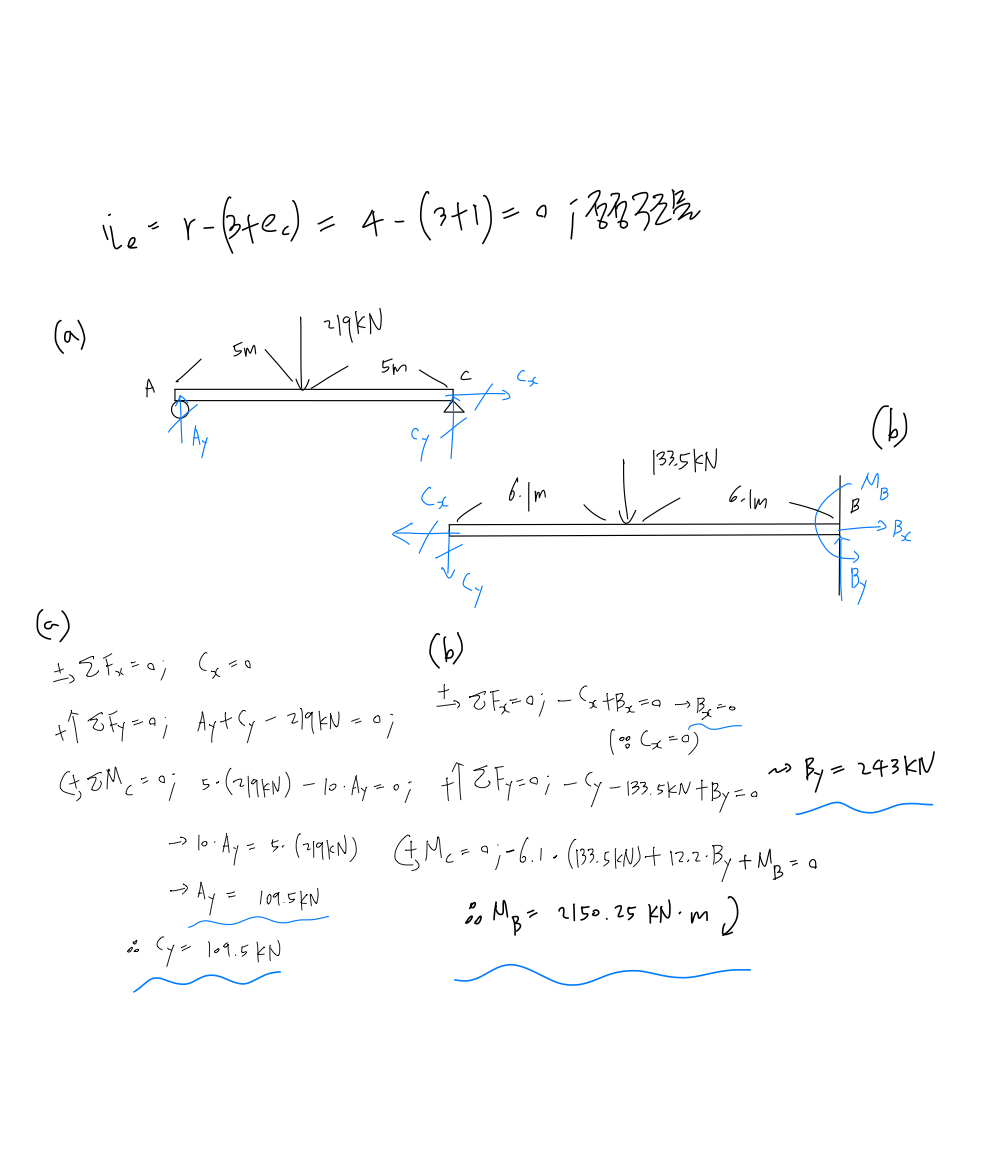 i_e = r-(3+e_c) = 4-(3+1) = 0 ; 정정구조물
(a)
219kN
5m
5m
A
C
C_x
A_y
C_y
(b)
133.5kN
6.1m
6.1m
M_B
B
C_x
B_x
C_y
B_y
(a)
→+ ΣF_x=0; C_x=0
+↑ ΣF_y=0; A_y+C_y-219kN=0;
(+ ΣM_C=0; 5·(219kN)-10·A_y=0;
→ 10·A_y = 5·(219kN)
→ A_y = 109.5kN
∴ C_y = 109.5kN
(b)
→+ ΣF_x=0; -C_x+B_x=0 → B_x=0
(∵ C_x=0)
+↑ ΣF_y=0; -C_y-133.5kN+B_y=0
⇝ B_y = 243kN
(+ M_C=0; -6.1·(133.5kN)+12.2·B_y+M_B=0
∴ M_B = 2150.25 kN·m